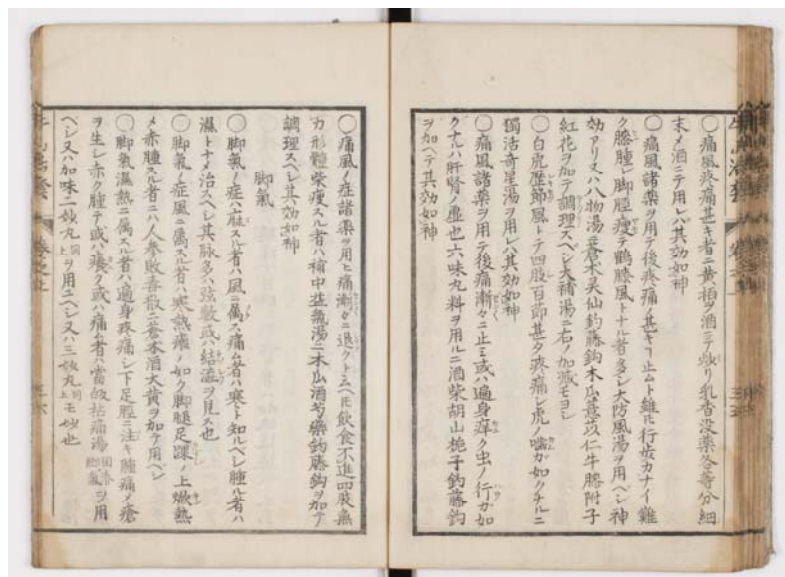 〇痛風疼痛甚キ者ニ黄栢ヲ酒ニテ炒リ乳香没薬各等分細
末メ酒ニテ用レバ其効如神
〇痛風諸薬ヲ用テ後疼痛ノ甚キヿ止ムト雖モ行歩カナイ難
ク膝腫レ脚脛瘦テ鶴膝風トナル者多シ大防風湯ヲ用ベシ神
効アリ又ハ八物湯ニ蒼木呉仙釣藤鈎木瓜薏苡仁牛膝附子
紅花ヲ加テ調理スベシ大補湯ニ右ノ加減モヨシ
〇白虎歴節風トテ四肢百節甚タ疼痛レ虎ノ噛カ如クナルニ
獨活寄星湯ヲ用レバ其効如神
〇痛風諸薬ヲ用テ後痛漸々ニ止ミ或ハ遍身痒ク虫ノ行カ如
クナルハ肝腎ノ虚也六味丸料ヲ用ルニ酒柴胡山梔子釣藤鈎
ヲ加ヘテ其効如神
〇痛風ノ症諸薬ヲ用ヒ痛漸々ニ退クト云ヘモ飲食不進四肢無
力形體柴瘦スル者ハ補中益氣湯ニ木瓜酒芍藥釣藤鈎ヲ加テ
調理スベシ其効如神
脚氣
〇脚氣ノ症ハ麻スル者ハ風ニ属ス痛ム者ハ寒ト知ルベシ腫ル者ハ
濕トナメ治スベシ其脉多ハ弦數或ハ結濇ヲ見ス也
〇脚氣ノ症風ニ属スル者ハ寒熱瘧ノ如ク脚腿足踝ノ上焮熱
メ赤腫スル者ニハ人参敗毒散ニ蒼木酒大黄ヲ加テ用ベシ
〇脚氣濕熱ニ属スル者ハ遍身疼痛シ下足脛ニ注キ腫痛メ瘡
ヲ生レ赤ク腫テ或ハ癢ク或ハ痛ム者ハ當皈拈痛湯回春脚氣ヲ用
ベシ又ハ加味二妙丸同上ヲ用ユベシ又ハ三妙丸同上モ妙也